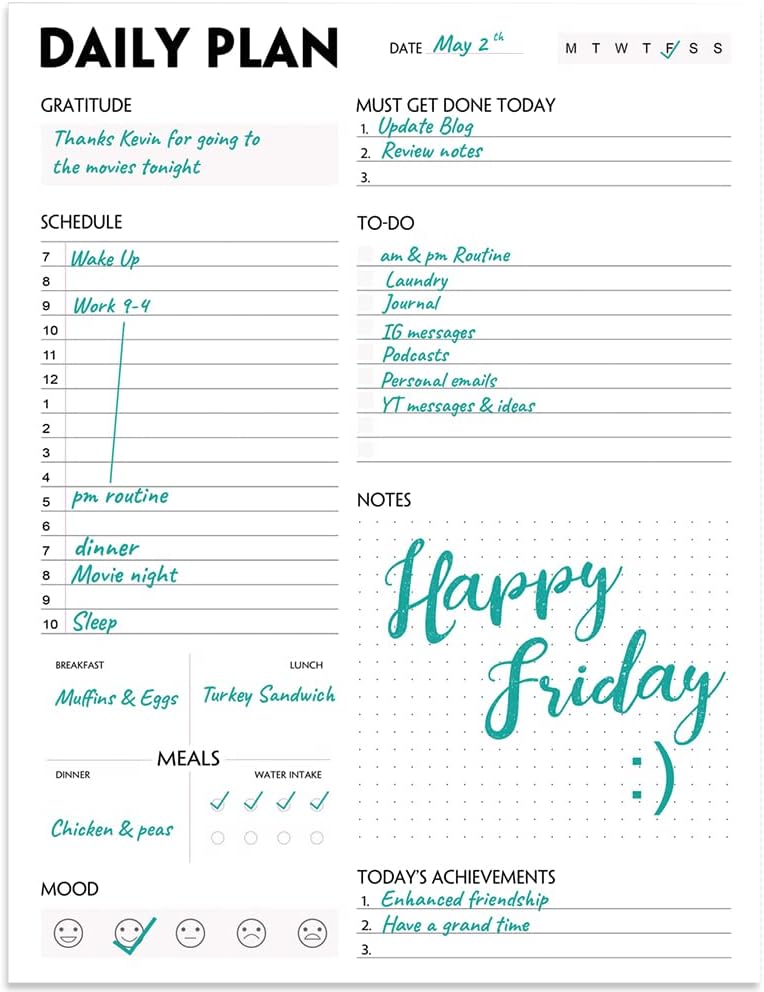 DAILY PLAN
DATE May 2th
M T W T F S S
GRATITUDE
Thanks Kevin for going to
the movies tonight
MUST GET DONE TODAY
1. Update Blog
2. Review notes
3.
SCHEDULE
7 Wake Up
8
9 Work 9-4
10
11
12
1
2
3
4
5 pm routine
6
7 dinner
8 Movie night
9
10 Sleep
TO-DO
am & pm Routine
Laundry
Journal
IG messages
Podcasts
Personal emails
YT messages & ideas
NOTES
Happy
Friday
:)
BREAKFAST
Muffins & Eggs
LUNCH
Turkey Sandwich
MEALS
DINNER
Chicken & peas
WATER INTAKE
MOOD
TODAY'S ACHIEVEMENTS
1. Enhanced friendship
2. Have a grand time
3.